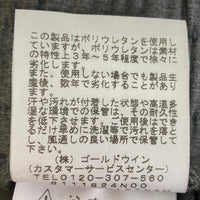 この製品はポリウレタンを使用し
ていますが、ポリウレタンは素材
の特性上3年～5年程度で徐々に
劣化します。
また、使用しない場合でも製品生
産後、数年で劣化することがあり
ます。
汗や汚れが付着した状態や高温多
湿な環境での保管は、その耐久性
を低下させます。ご使用後はでき
るだけ早めに洗濯等で汚れを落と
し、風通しの良い場所で保管して
下さい。
(株) ゴールドウイン
(カスタマーサービスセンター)
TEL0120-307-560
B111824N00